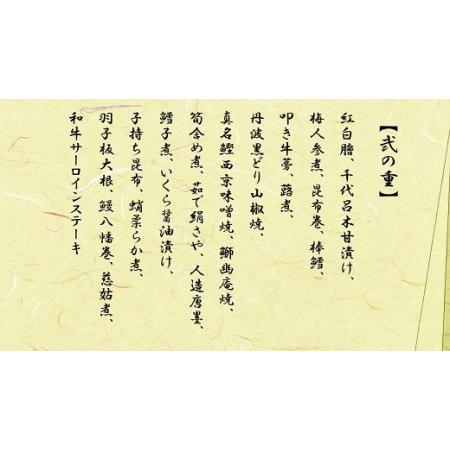 【弐の重】
紅白膾、千代呂木甘漬け、
梅人参煮、昆布巻、棒鱈、
叩き牛蒡、蕗煮、
丹波黒どり山椒焼、
真名鰹西京味噌焼、鰤幽庵焼、
筍含め煮、茹で絹さや、人造唐墨、
鱈子煮、いくら醤油漬け、
子持ち昆布、蛸柔らか煮、
羽子板大根、鰻八幡巻、慈姑煮、
和牛サーロインステーキ